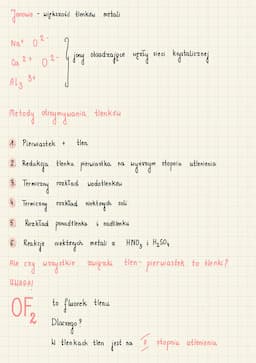 Jonowe - większość tlenków metali
Na⁺ O²⁻
Ca²⁺ O²⁻ } jony obsadzające węzły sieci krystalicznej
Al₃ ³⁺
Metody otrzymywania tlenków
1. Pierwiastek + tlen
2. Redukcja tlenku pierwiastka na wyższym stopniu utlenienia
3. Termiczny rozkład wodorotlenków
4. Termiczny rozkład niektórych soli
5. Rozkład ponadtlenku i nadtlenku
6. Reakcje niektórych metali z HNO₃ i H₂SO₄
Ale czy wszystkie związki tlen-pierwiastek to tlenki?
UWAGA!
OF₂ to fluorek tlenu
Dlaczego?
W tlenkach tlen jest na II stopniu utlenienia